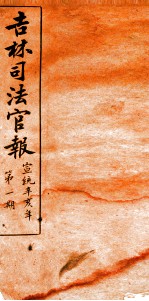 吉林司法官報
宣統辛亥年
第一期